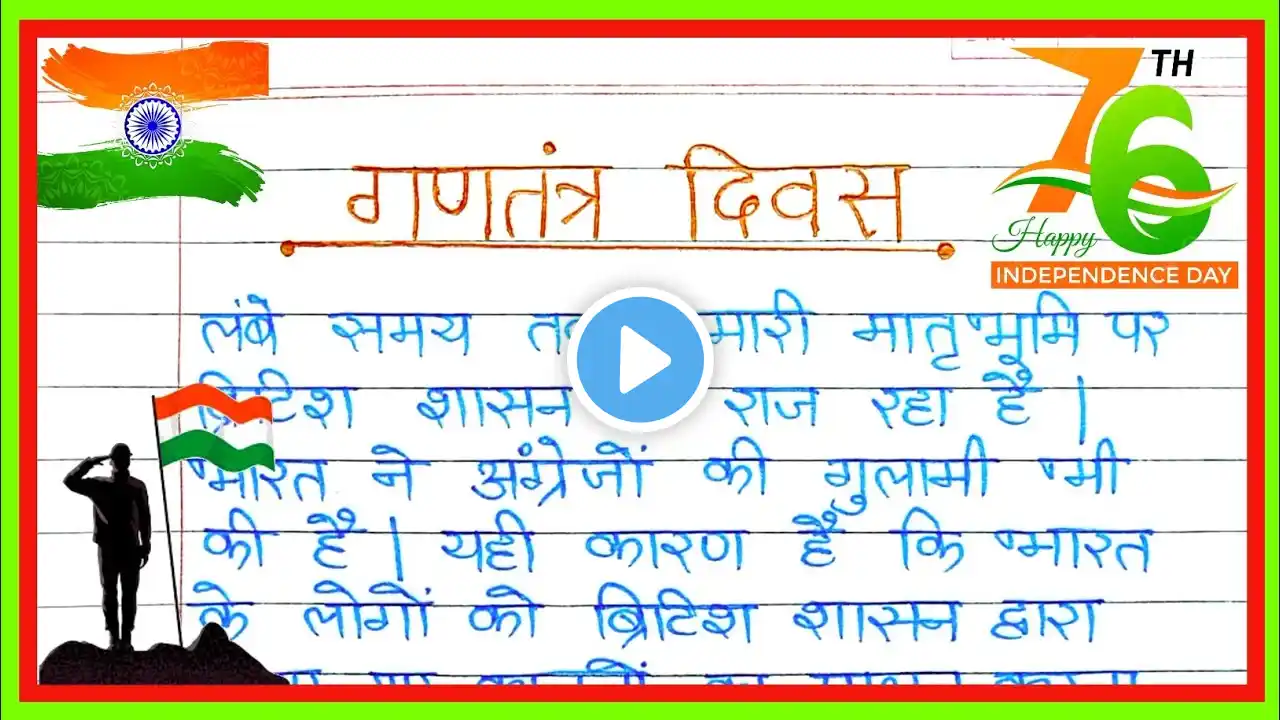 76TH
Happy
INDEPENDENCE DAY
गणतंत्र दिवस
लंबे समय मारी मातृभूमि पर
ब्रिटिश शासन राज रहा है |
भारत ने अंग्रेजों की गुलामी भी
की है | यही कारण हैं कि भारत
के लोगों को ब्रिटिश शासन द्वारा